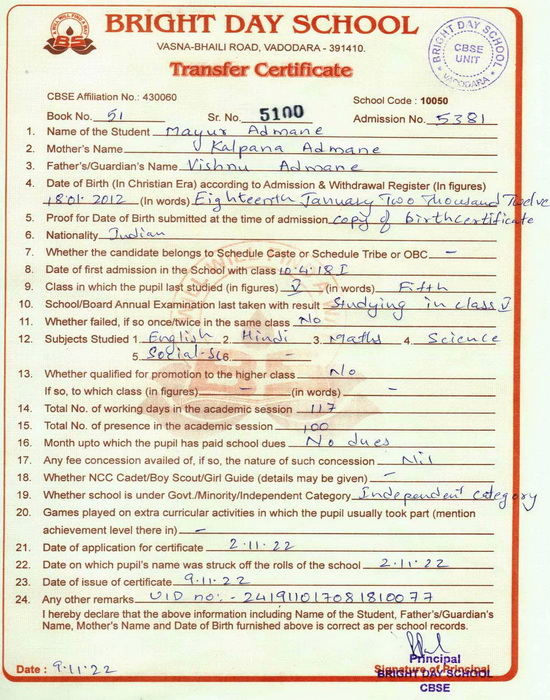 BRIGHT DAY SCHOOL
VASNA-BHAILI ROAD, VADODARA - 391410.
Transfer Certificate
BRIGHT DAY SCHOOL
CBSE
UNIT
VADODARA
CBSE Affiliation No.: 430060
School Code : 10050
Book No. 51 Sr. No. 5100 Admission No. 5381
1. Name of the Student Mayur Admane
2. Mother's Name Kalpana Admane
3. Father's/Guardian's Name Vishnu Admane
4. Date of Birth (In Christian Era) according to Admission & Withdrawal Register (In figures)
18.01.2012 (In words) Eighteenth January Two Thousand Twelve
5. Proof for Date of Birth submitted at the time of admission copy of birthcertificate
6. Nationality Indian
7. Whether the candidate belongs to Schedule Caste or Schedule Tribe or OBC –
8. Date of first admission in the School with class 10.4.18 I
9. Class in which the pupil last studied (in figures) V (in words) Fifth
10. School/Board Annual Examination last taken with result Studying in class V
11. Whether failed, if so once/twice in the same class No
12. Subjects Studied 1. English 2. Hindi 3. Maths 4. Science
5. Social-Sc 6. -
13. Whether qualified for promotion to the higher class No
If so, to which class (in figures) – (in words) –
14. Total No. of working days in the academic session 117
15. Total No. of presence in the academic session 100
16. Month upto which the pupil has paid school dues No dues
17. Any fee concession availed of, if so, the nature of such concession Nil
18. Whether NCC Cadet/Boy Scout/Girl Guide (details may be given) –
19. Whether school is under Govt./Minority/Independent Category Independent category
20. Games played on extra curricular activities in which the pupil usually took part (mention
achievement level there in) –
21. Date of application for certificate 2.11.22
22. Date on which pupil's name was struck off the rolls of the school 2.11.22
23. Date of issue of certificate 9.11.22
24. Any other remarks UID no:- 241911017081810077
I hereby declare that the above information including Name of the Student, Father's/Guardian's
Name, Mother's Name and Date of Birth furnished above is correct as per school records.
Date : 9.11.22
Principal
Signature of Principal
BRIGHT DAY SCHOOL
CBSE